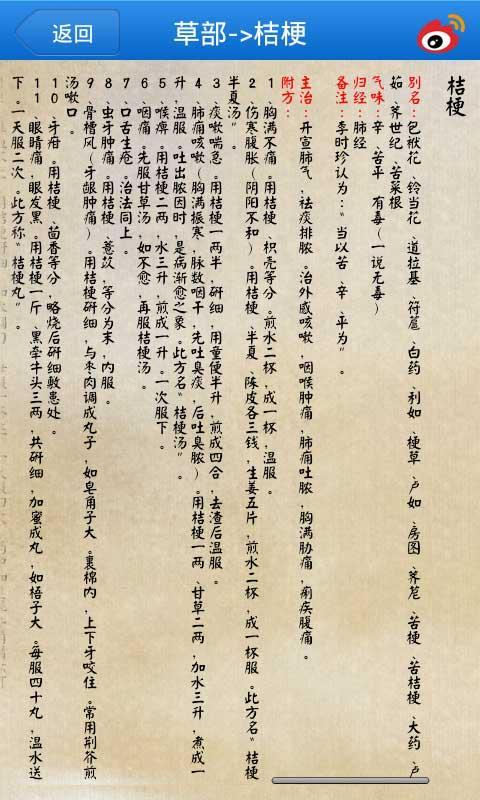 返回
草部->桔梗
桔梗
别名：包袱花、铃当花、道拉基、符蔰、白药、利如、梗草、卢如、房图、荠苨、苦梗、苦桔梗、大药、卢
茹、荠世纪、苦菜根
气味：辛、苦平 有毒(一说无毒)
归经：肺经
备注：李时珍认为："当以苦、辛、平为"。
主治：开宣肺气，祛痰排脓。治外感咳嗽，咽喉肿痛，肺痈吐脓，胸满胁痛，痢疾腹痛。
附方：
1、胸满不痛。用桔梗、枳壳等分。煎水二杯，成一杯，温服。
2、伤寒腹胀(阴阳不和)。用桔梗、半夏、陈皮各三钱，生姜五片，煎水二杯，成一杯服。此方名"桔梗
半夏汤"。
3、痰嗽喘急。用桔梗一两半，研细，用童便半升，煎成四合，去渣后温服。
4、肺痈咳嗽(胸满振寒，脉数咽干，先吐臭痰，后吐臭脓)。用桔梗一两、甘草二两，加水三升，煮成一
升，温服。吐出脓因时，是病渐愈之象。此方名"桔梗汤"。
5、喉痹。用桔梗二两，水三升，煎成一升。一次服下。
6、咽痛。先服甘草汤，如不愈，再服桔梗汤。
7、口舌生疮。治法同上。
8、虫牙肿痛。用桔梗、薏苡，等分为末，内服。
9、骨槽风(牙龈肿痛)。用桔梗研细，与枣肉调成丸子，如皂角子大。裹棉内，上下牙咬住。常用荆芥煎
汤嗽口。
10、牙疳。用桔梗、茴香等分，略烧后研细敷患处。
11、眼睛痛，眼发黑。用桔梗一斤、黑牵牛头三两，共研细，加蜜成丸，如梧子大。每服四十丸，温水送
下。一天服二次。此方称"桔梗丸"。